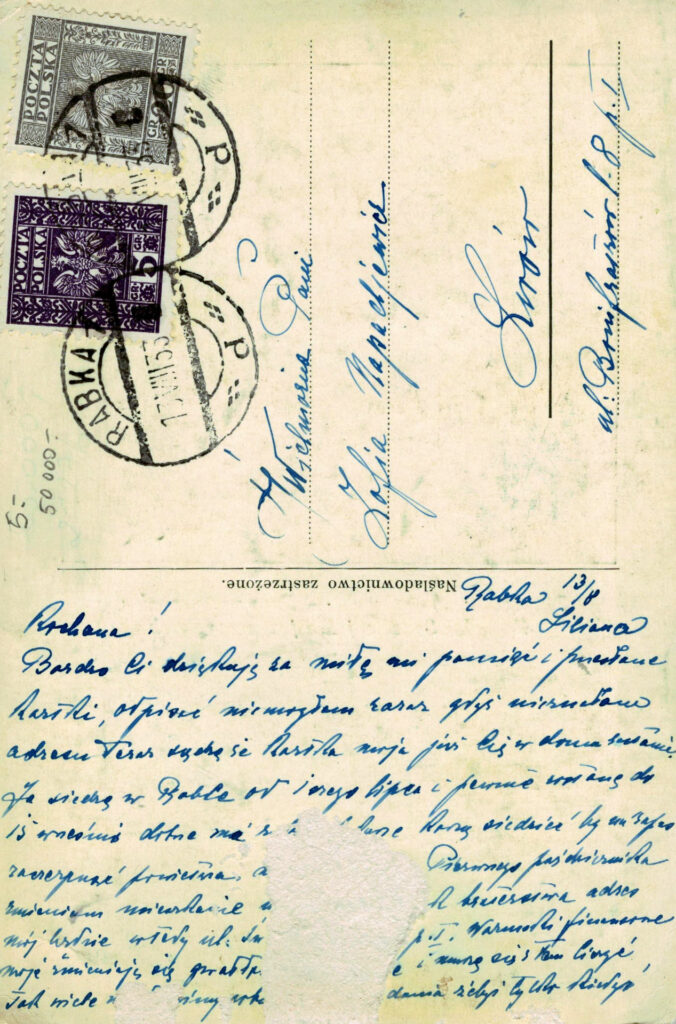 POCZTA POLSKA GR 20 GR
POCZTA POLSKA GR 5 GR
RABKA 13 VIII 33
5.-
50000.-
Wielmożna Pani
Zofja Napadjewicz
Lwów
ul. Bonifratrów l. 8 p. I
Naśladownictwo zastrzeżone.
Rabka 13/8
Liliana
Kochana!
Bardzo Ci dziękuję za miłą mi pamięć i przesłane
kartki, odpisać niemogłam zaraz gdyż nieznałam
adresu teraz sądzę że kartka moja już Cię w domu
Ja siedzę w Rabce od 1 lipca i pewnie zostanę do
15 września dobrze każą siedzieć by na zapas
zaczerpnąć powietrza, Pierwszego października
zmieniam mieszkanie adres
mój będzie wtedy ul. p. I. Warunki finansowe
moje zmieniają się i muszę się z tem liczyć
Tak wiele żebyś tylko kiedyś